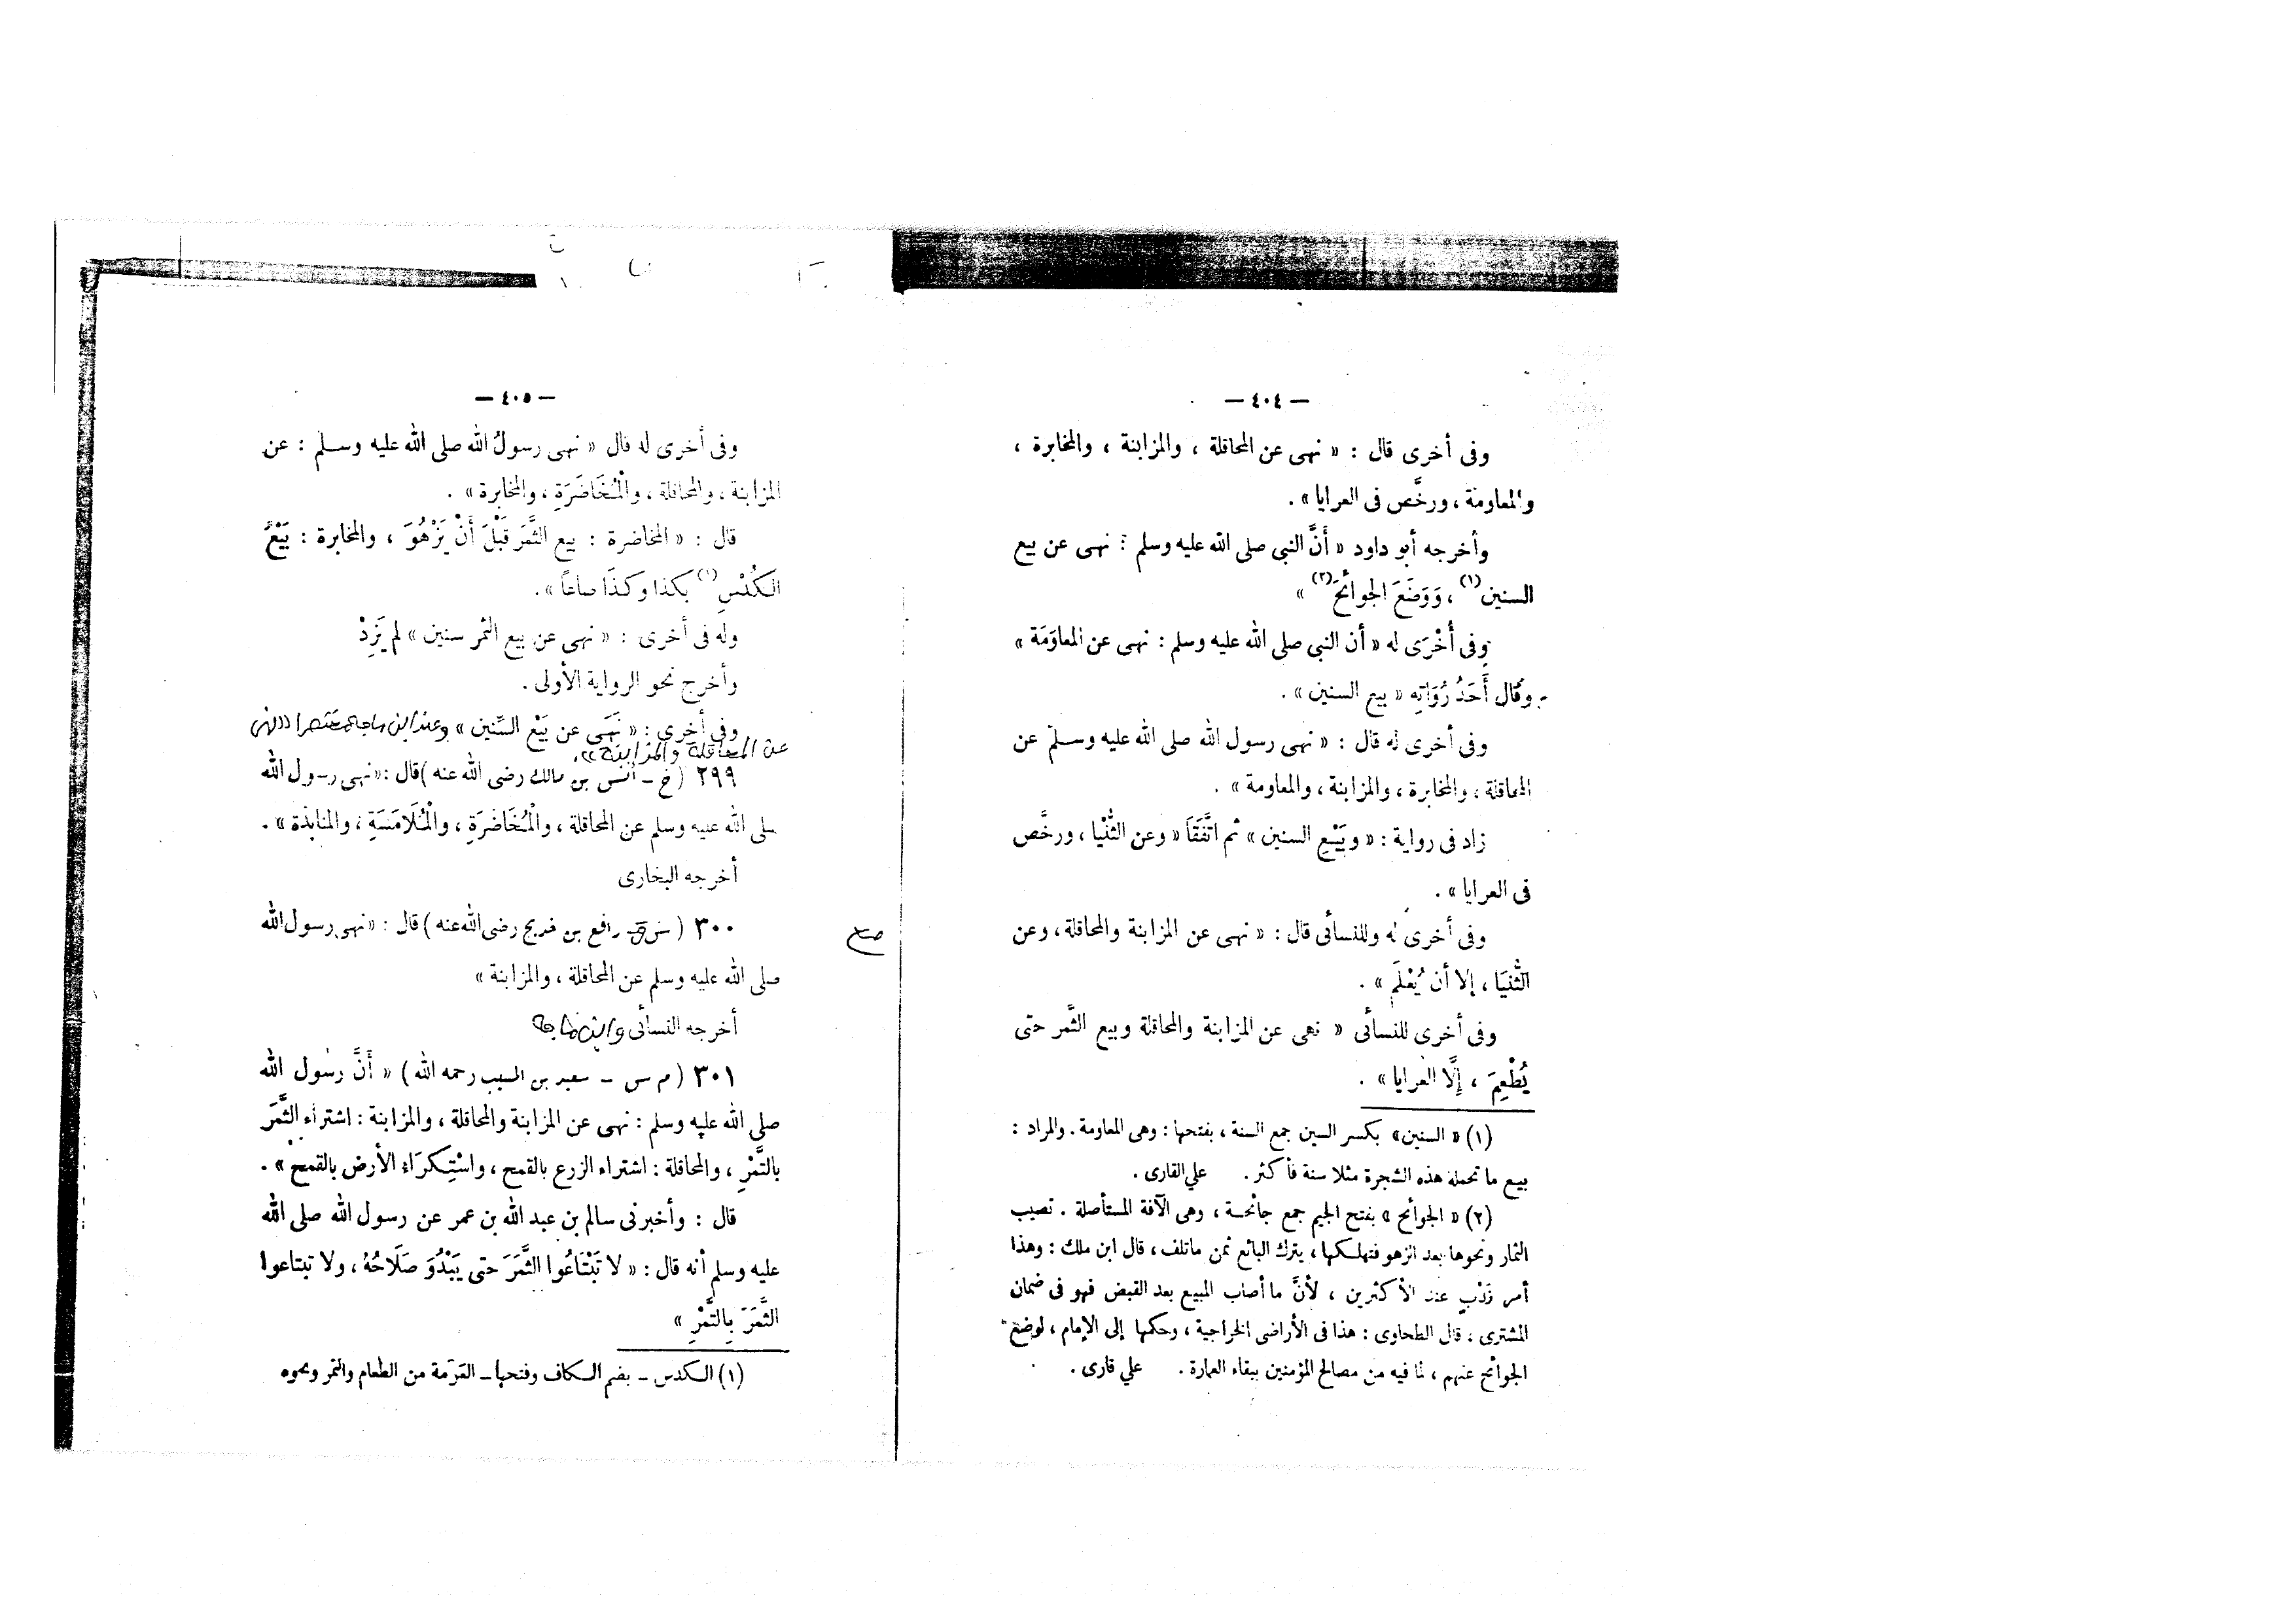 — ٤٠٤ —
وفى أخرى قال : « نهى عن المحاقلة ، والمزابنة ، والمخابرة ،
والمعاومة ، ورخَّص فى العرايا » .
وأخرجه أبو داود « أَنَّ النبى صلى الله عليه وسلم : نهى عن بيع
السنين(١) ، وَوَضَعَ الجوائحَ(٢) »
وفى أُخْرَى له « أن النبى صلى الله عليه وسلم : نهى عن المعاوَمَة »
وقال أَحَدُ رُوَاتِهِ « بيع السنين » .
وفى أخرى له قال : « نهى رسول الله صلى الله عليه وسلم عن
المحاقلة ، والمخابرة ، والمزابنة ، والمعاومة » .
زاد فى رواية : « وبَيْعِ السنين » ثم اتَّفَقَا « وعن الثُّنْيا ، ورخَّص
فى العرايا » .
وفى أخرى له وللنسائى قال : « نهى عن المزابنة والمحاقلة ، وعن
الثُّنيَا ، إلا أن يُعْلَمَ » .
وفى أخرى للنسائى « نهى عن المزابنة والمحاقلة وبيع الثَّمر حتى
يُطْعِمَ ، إلَّا العرايا » .
(١) « السنين » بكسر السين جمع السنة ، بفتحها : وهى المعاومة . والمراد :
بيع ما تحمله هذه الشجرة مثلا سنة فأكثر . علي القارى .
(٢) « الجوائح » بفتح الجيم جمع جائحة ، وهى الآفة المستأصلة . تصيب
الثمار ونحوها بعد الزهو فتهلكها ، يترك البائع ثمن ماتلف ، قال ابن ملك : وهذا
أمر نَدْبٍ عند الأكثرين ، لأنَّ ما أصاب المبيع بعد القبض فهو فى ضمان
المشترى ، قال الطحاوى : هذا فى الأراضى الخراجية ، وحكمها إلى الإمام ، لوضع
الجوائح عنهم ، لما فيه من مصالح المؤمنين ببقاء العمارة . علي قارى .
— ٤٠٥ —
وفى أخرى له قال « نهى رسولُ الله صلى الله عليه وسلم : عن
المزابنة ، والمحاقلة ، والْمُخَاضَرَةِ ، والمخابرة » .
قال : « المخاضرة : بيع الثَّمَر قَبْلَ أَنْ يَزْهُوَ ، والمخابرة : بَيْعُ
الكُدْسِ(١) بكذا وكذَا صاعاً » .
وله فى أخرى : « نهى عن بيع الثمر سنين » لم يَزِدْ
وأخرج نحو الرواية الأولى .
وفى أخرى : « نَهَى عن بَيْعِ السِّنين » وعند ابن ماجه مختصرا « نهى
عن المحاقلة والمزابنة » .
٢٩٩ ( خ – أنس بن مالك رضى الله عنه ) قال : « نهى رسول الله
صلى الله عليه وسلم عن المحاقلة ، والْمُخَاضَرَةِ ، والْمُلَامَسَةِ ، والمنابذة » .
أخرجه البخارى
٣٠٠ ( س ق – رافع بن خديج رضى الله عنه ) قال : « نهى رسول الله
صلى الله عليه وسلم عن المحاقلة ، والمزابنة »
صح
أخرجه النسائى وابن ماجه
٣٠١ ( م س – سعيد بن المسيب رحمه الله ) « أَنَّ رسول الله
صلى الله عليه وسلم : نهى عن المزابنة والمحاقلة ، والمزابنة : اشتراء الثَّمَرَ
بالتَّمْرِ ، والمحاقلة : اشتراء الزرع بالقمح ، واسْتِكرَاءِ الأرض بالقمح » .
قال : وأخبرنى سالم بن عبد الله بن عمر عن رسول الله صلى الله
عليه وسلم أنه قال : « لا تَبْتَاعُوا الثَّمَرَ حتى يَبْدُوَ صَلَاحُهُ ، ولا تبتاعوا
الثَّمَرَ بِالتَّمْرِ »
(١) الكدس – بضم الكاف وفتحها – العَرَمة من الطعام والتمر ونحوه